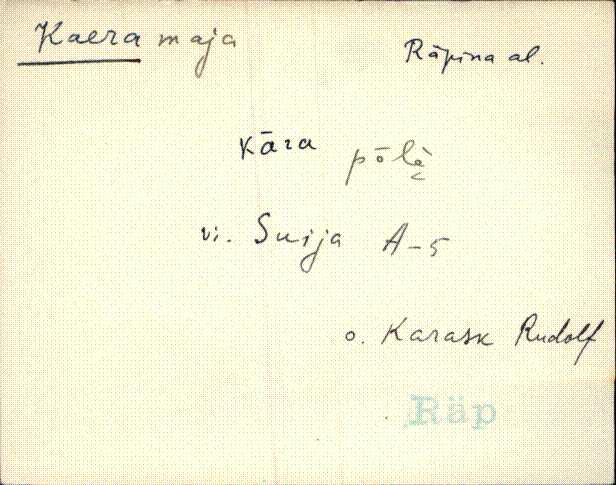 Kaera maja
Räpina al.
kāra pōlè̬
vi. Suija A-5
o. Karask Rudolf
Räp